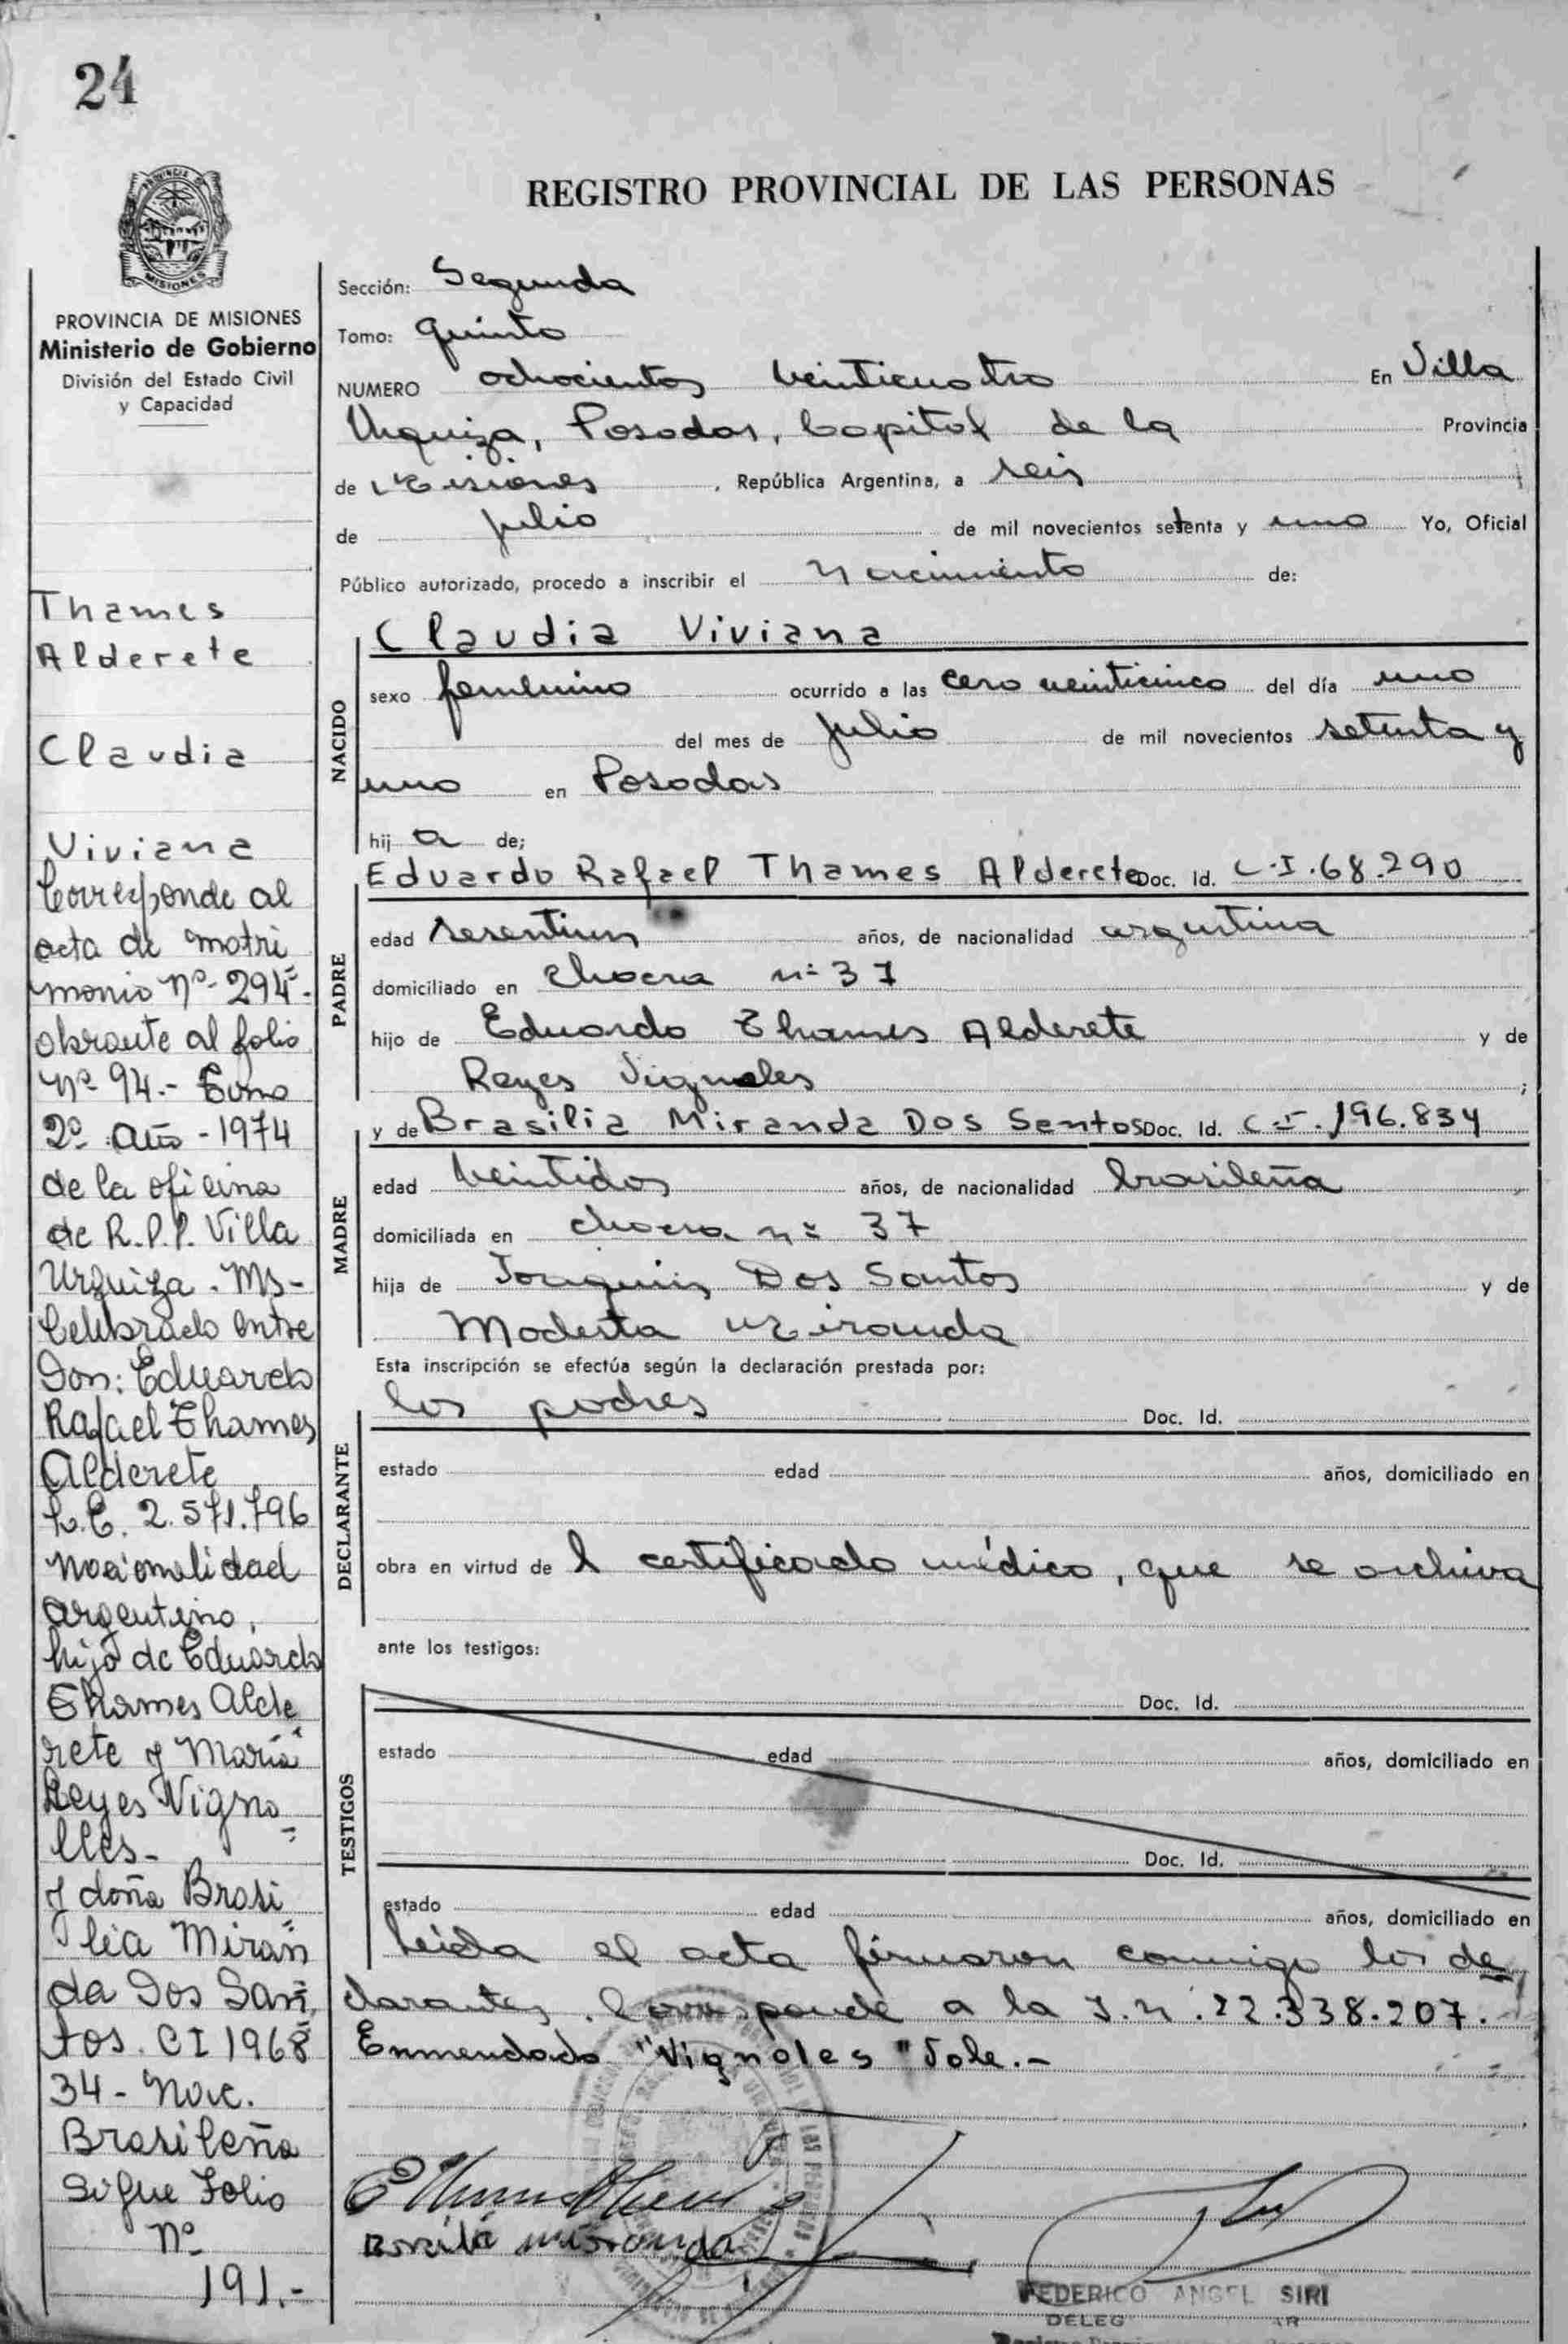 24
REGISTRO PROVINCIAL DE LAS PERSONAS
MISIONES
PROVINCIA DE MISIONES
Ministerio de Gobierno
División del Estado Civil
y Capacidad
Thames
Alderete
Claudia
Viviana
Corresponde al
acta de matri
monio Nº 294.-
obrante al folio
Nº 94.- Tomo
2º Año - 1974
de la oficina
de R.P.P. Villa
Urquiza. Ms-
Celebrado entre
Don: Eduardo
Rafael Thames
Alderete
L.E. 2.571.796
Nacionalidad
argentino,
hijo de Eduardo
Thames Alde
rete y María
Reyes Vigno
lles-
y doña Brasi
lia Miran
da Dos San
tos. CI 1968
34 - Nac.
Brasileña
Sigue Folio
Nº
191.-
Sección: Segunda
Tomo: quinto
NUMERO ochocientos veinticuatro En Villa
Urquiza, Posadas, Capital de la Provincia
de Misiones, República Argentina, a seis
de julio de mil novecientos setenta y uno Yo, Oficial
Público autorizado, procedo a inscribir el nacimiento de:
NACIDO
Claudia Viviana
sexo femenino ocurrido a las cero veinticinco del día uno
del mes de julio de mil novecientos setenta y
uno en Posadas
hij a de;
PADRE
Eduardo Rafael Thames Alderete Doc. Id. C.I. 68.290
edad sesentiun años, de nacionalidad argentina
domiciliado en chacra nº 37
hijo de Eduardo Thames Alderete y de
Reyes Vignoles;
MADRE
y de Brasilia Miranda Dos Santos Doc. Id. C.I. 196.834
edad veintidos años, de nacionalidad brasileña
domiciliada en chacra nº 37
hija de Joaquin Dos Santos y de
Modesta Miranda
Esta inscripción se efectúa según la declaración prestada por:
DECLARANTE
los padres Doc. Id.
estado edad años, domiciliado en
obra en virtud de l certificado médico, que se archiva
ante los testigos:
TESTIGOS
Doc. Id.
estado edad años, domiciliado en
Doc. Id.
estado edad años, domiciliado en
leida el acta firmaron conmigo los de
clarantes. Corresponde a la I.N. 22.338.207.-
Enmendado "Vignoles" Vale.-
Miranda
FEDERICO ANGEL SIRI